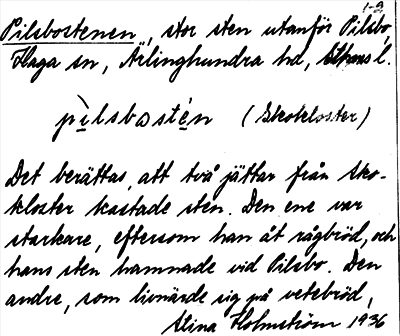 1-2
Pilsbostenen, stor sten utanför Pilsbo,
Haga sn, Ärlinghundra hd, Sthms l.
pìlsbɷstén (Skokloster)
Det berättas, att två jättar från Sko-
kloster kastade sten. Den ene var
starkare, eftersom han åt rågbröd, och
hans sten hamnade vid Pilsbo. Den
andre, som livnärde sig på vetebröd,
Stina Holmström 1936